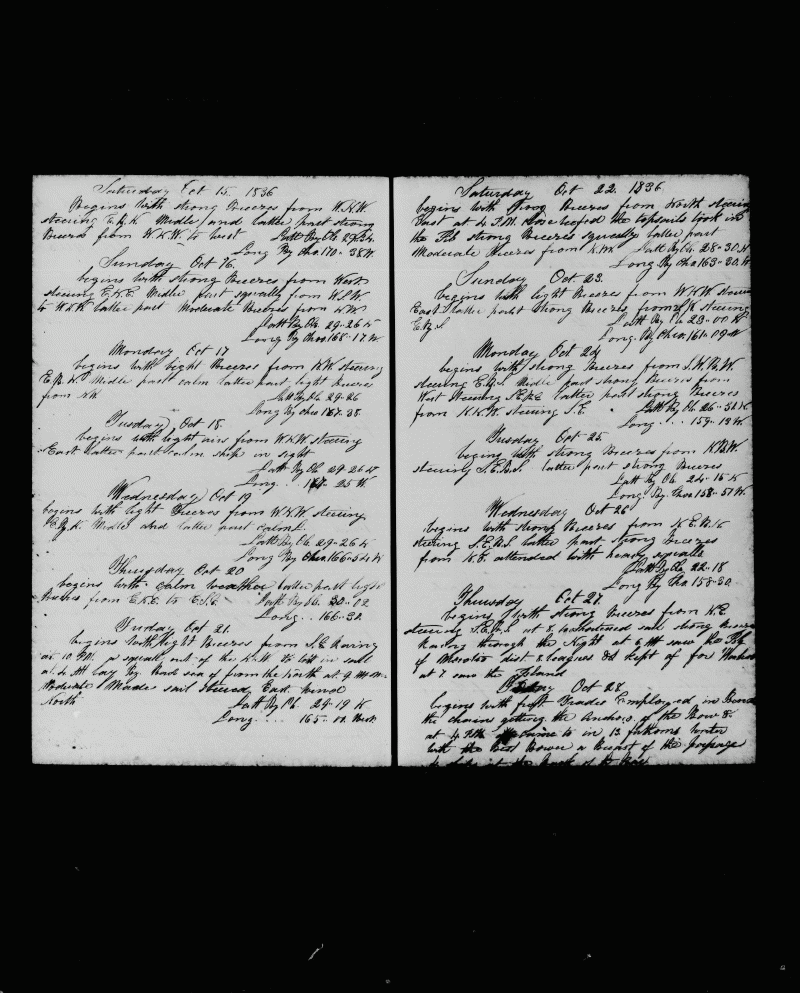 Saturday Oct 15. 1836
Begins with strong Breezes from W.N.W.
steering E.B.N Midle and latter part strong
Breezes from W.N.W. to West Latt By Ob 29-34
Long By Chro. 170-38 W
Sunday Oct 16.
begins with strong Breezes from West
steering E.N.E. Midle part squally from W.S.W.
to W.N.W latter part Moderate Breezes from NW
Latt By Ob. 29-26 N
Long By Chro 168-17 W
Monday Oct 17
begins with light Breezes from NW steering
E.B.N. Midle part calm latter part light Breezes
from NW Latt By Ob 29-26
Long By Chro 167-38
Tusday Oct 18
begins with light airs from W.N.W steering
East latter part calm ship in sight
Latt By Ob 29-26 N
Long. 167-25 W
Wednesday Oct 19
begins with light Breezes from W.N.W. steering
E.B.N. Midle and latter part calm
Latt By Ob. 29-26 N
Long By Chro 166-54 W
Thursday Oct 20
begins with calm weather latter part light
Breezes from E.N.E. to E.S.E. Latt By Ob. 30-02
Long. . 166-30
Friday Oct 21.
begins with light Breezes from S.E
at 10 P.M. a out of the N.W.
at 4 lay By Bad sea from the North at 9 AM
Moderate Made sail steered East wind
North Latt By Ob 29-19 N
Long 165-11 West
Saturday Oct 22. 1836
begins with strong Breezes from North steering
East at 4 P.M. reefed the topsails took in
the Jib strong Breezes squally latter part
Moderate Breezes from N.W. Latt By Ob. 28-30 N
Long By Chro 163-30. W
Sunday Oct 23.
begins with light Breezes from W.N.W steering
East latter part strong Breezes from steering
E.B.S Latt By Ob 28-00 N
Long. By Chro. 161-09 W
Monday Oct 24
begins with strong Breezes from S.W.B.W.
steering E.B.S Midle part strong Breezes from
West steering latter part strong Breezes
from N.N.W. steering S.E Latt By Ob 26-31 N
Long. . . 159-13 W
Tusday Oct 25.
begins with strong Breezes from N.B.W.
steering S.E.B.S. latter part strong Breezes
Latt By Ob 24-15 N
Long. By Chro 158-51 W.
Wednesday Oct 26
begins with strong Breezes from N.E.B.N
steering S.E.B.S latter part strong Breezes
from N.E. attended with heavy squalls
Latt By Ob 22-18
Long By Chro 158-30.
Thursday Oct 27.
begins with strong Breezes from N.E.
steering S.E.B.S at 8 shortened sail strong Breezes
through the Night at 6 AM saw the Isle
of dist 8 leagues kept of for
at 7 saw the Island
Friday Oct 28.
begins with fresh Trades Employed in Bending
the chains getting the Anchors of the Bows &
at 4 P.M. came to in 13 fathoms water
with the Best Bower a Breast of the passage